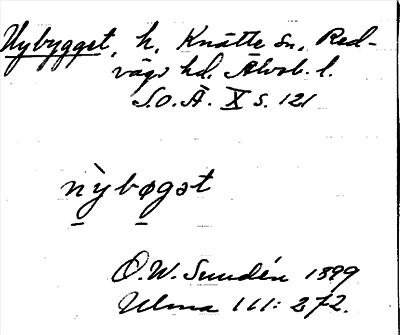 Nybygget, h, Knätte sn, Red-
vägs hd. Älvsb. l.
S.O.Ä. X s. 121
nỳbøgət
O.W. Sundén 1899
Ulma 111: 272.